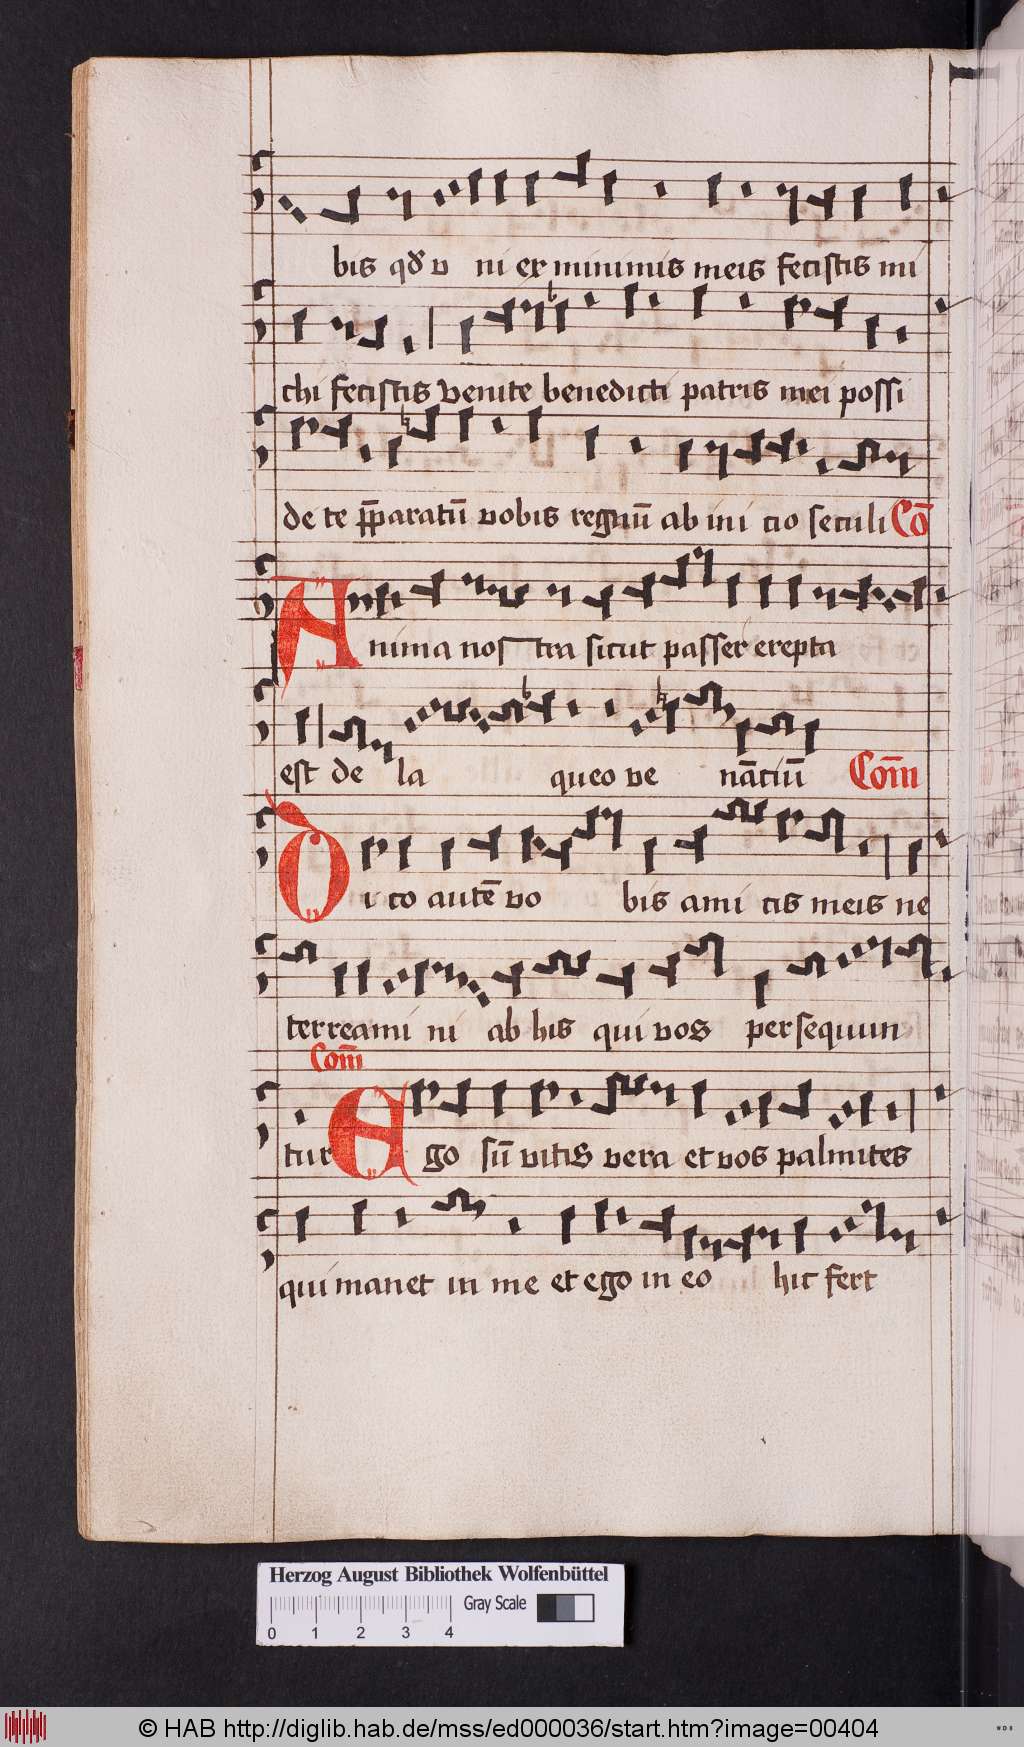 bis qđ v ni ex minimis meis fecistis mi
chi fecistis venite benedicti patris mei possi
de te p̄paratū vobis regnū ab ini cio seculi Cō
Anima nostra sicut passer erepta
est de la queo ve nātiū Com̄
Dico autē vo bis ami cis meis ne
terreamini ab his qui vos persequun
Com̄
tur Ego sū vitis vera et vos palmites
qui manet in me et ego in eo hic fert
Herzog August Bibliothek Wolfenbüttel
Gray Scale
0 1 2 3 4
© HAB http://diglib.hab.de/mss/ed000036/start.htm?image=00404